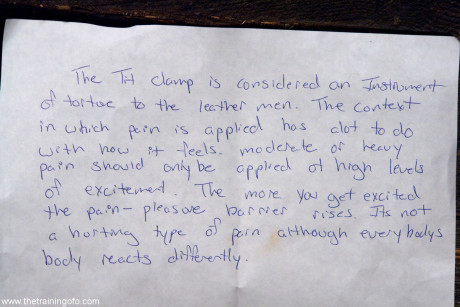 The Tit clamp is considered an Instrument
of tortue to the leather men. The context
in which pain is applied has alot to do
with how it feels. moderate or heavy
pain should only be applied at high levels
of excitement. The more you get excited
the pain-pleasure barrier rises. Its not
a hurting type of pain although everybodys
body reacts differently.
www.thetrainingofo.com